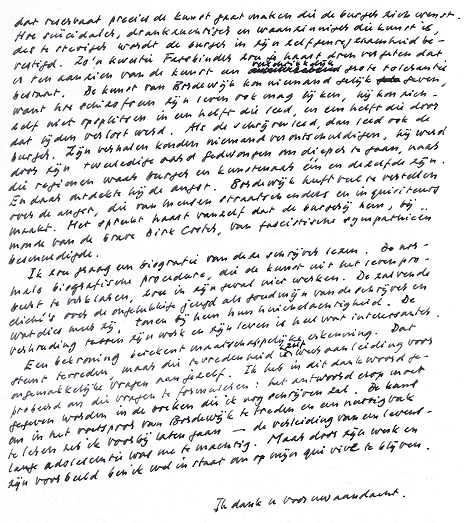 dat reservaat precies de kunst gaat maken die de burger zich wenst.
Hoe suïcidaler, drankzuchtiger en waanzinniger die kunst is,
des te steviger wordt de burger in zijn zelfgenoegzaamheid be-
vestigd. Zo'n kwestie Fassbinder zou je haast doen vergeten dat
er ten aanzien van de kunst een grote tolerantie
bestaat. De kunst van Bordewijk kon niemand gelijk geven,
want hoe schizofreen zijn leven ook mag lijken, hij kon zich-
zelf niet opsplitsen in een helft die leed, en een helft die door
dat lijden verlost werd. Als de schrijver leed, dan leed ook de
burger. Zijn verhalen konden niemand verontschuldigen, hij werd
door zijn tweeledige aard gedwongen om dieper te gaan, naar
die regionen waar burger en kunstenaar één en dezelfde zijn.
En daar ontdekte hij de angst. Bordewijk heeft veel te vertellen
over de angst, die van mensen straatschenders en inquisiteurs
maakt. Het spreekt haast vanzelf dat de burgerij hem, bij
monde van de brave Dirk Coster, van fascistische sympathieën
beschuldigde.
Ik zou graag een biografie van deze schrijver lezen. De nor-
male biografische procedure, die de kunst uit het leven pro-
beert te verklaren, zou in zijn geval niet werken. De zalvende
cliché's over de ongelukkige jeugd als goudmijn van de schrijver en
wat dies meer zij, tonen bij hem hun halfslachtigheid. De
verhouding tussen zijn werk en zijn leven is heel wat interessanter.
Een bekroning betekent maatschappelijke erkenning. Dat
stemt tevreden, maar die tevredenheid is weer aanleiding voor
ongemakkelijke vragen aan jezelf. Ik heb in dit dankwoord ge-
probeerd om die vragen te formuleren: het antwoord erop moet
gegeven worden in de boeken die ik nog schrijven zal. De kans
om in het voetspoor van Bordewijk te treden en een nuttig vak
te leren heb ik voorbij laten gaan — de verleiding van een levens-
lange adolescentie was me te machtig. Maar door zijn werk en
zijn voorbeeld ben ik wel in staat om op mijn qui vive te blijven.
Ik dank u voor uw aandacht.